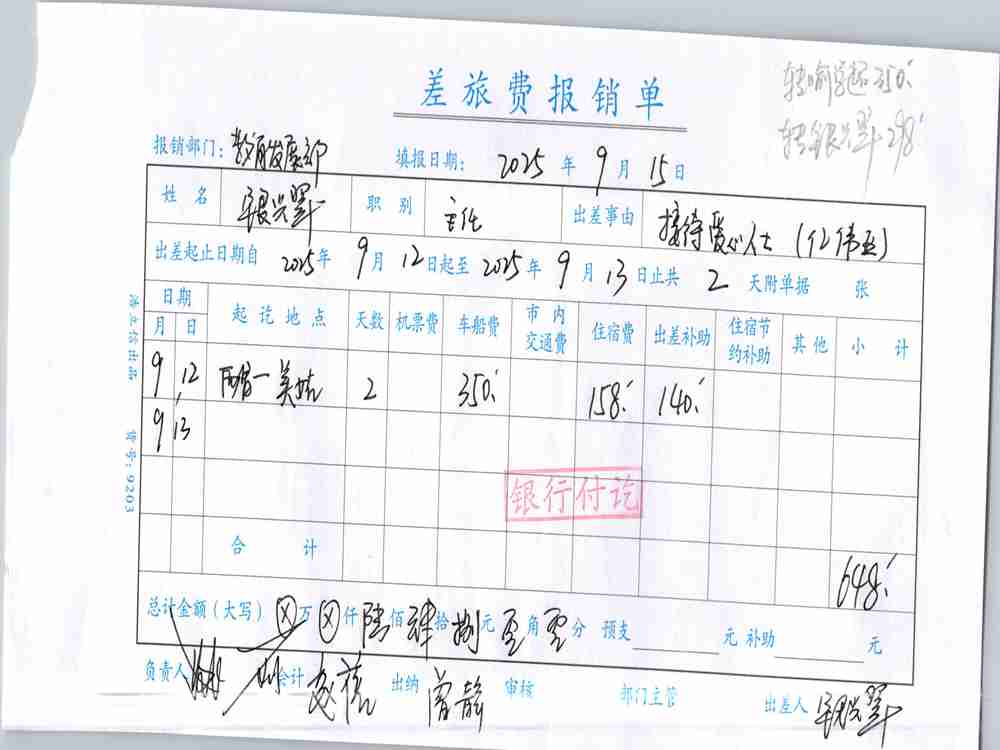 差旅费报销单
转 350.
转银兴 298.
报销部门: 发展部 填报日期: 2025 年 9 月 15 日
姓名 银兴 职别 主任 出差事由 接待爱心人士 (仁伟亚)
出差起止日期自 2025 年 9 月 12 日起至 2025 年 9 月 13 日止共 2 天附单据 张
日期 起讫地点 天数 机票费 车船费 市内交通费 住宿费 出差补助 住宿节约补助 其他 小计
月 日
9 12 西昌一美姑 2 350. 158. 140.
9 13
银行付讫
合计 648.
总计金额(大写) ⊗ 万 ⊗ 仟 陆 佰 肆 拾 捌 元 零 角 零 分 预支 元 补助 元
负责人 会计 出纳 曾静 审核 部门主管 出差人 银兴
浩立信出品 货号:9203